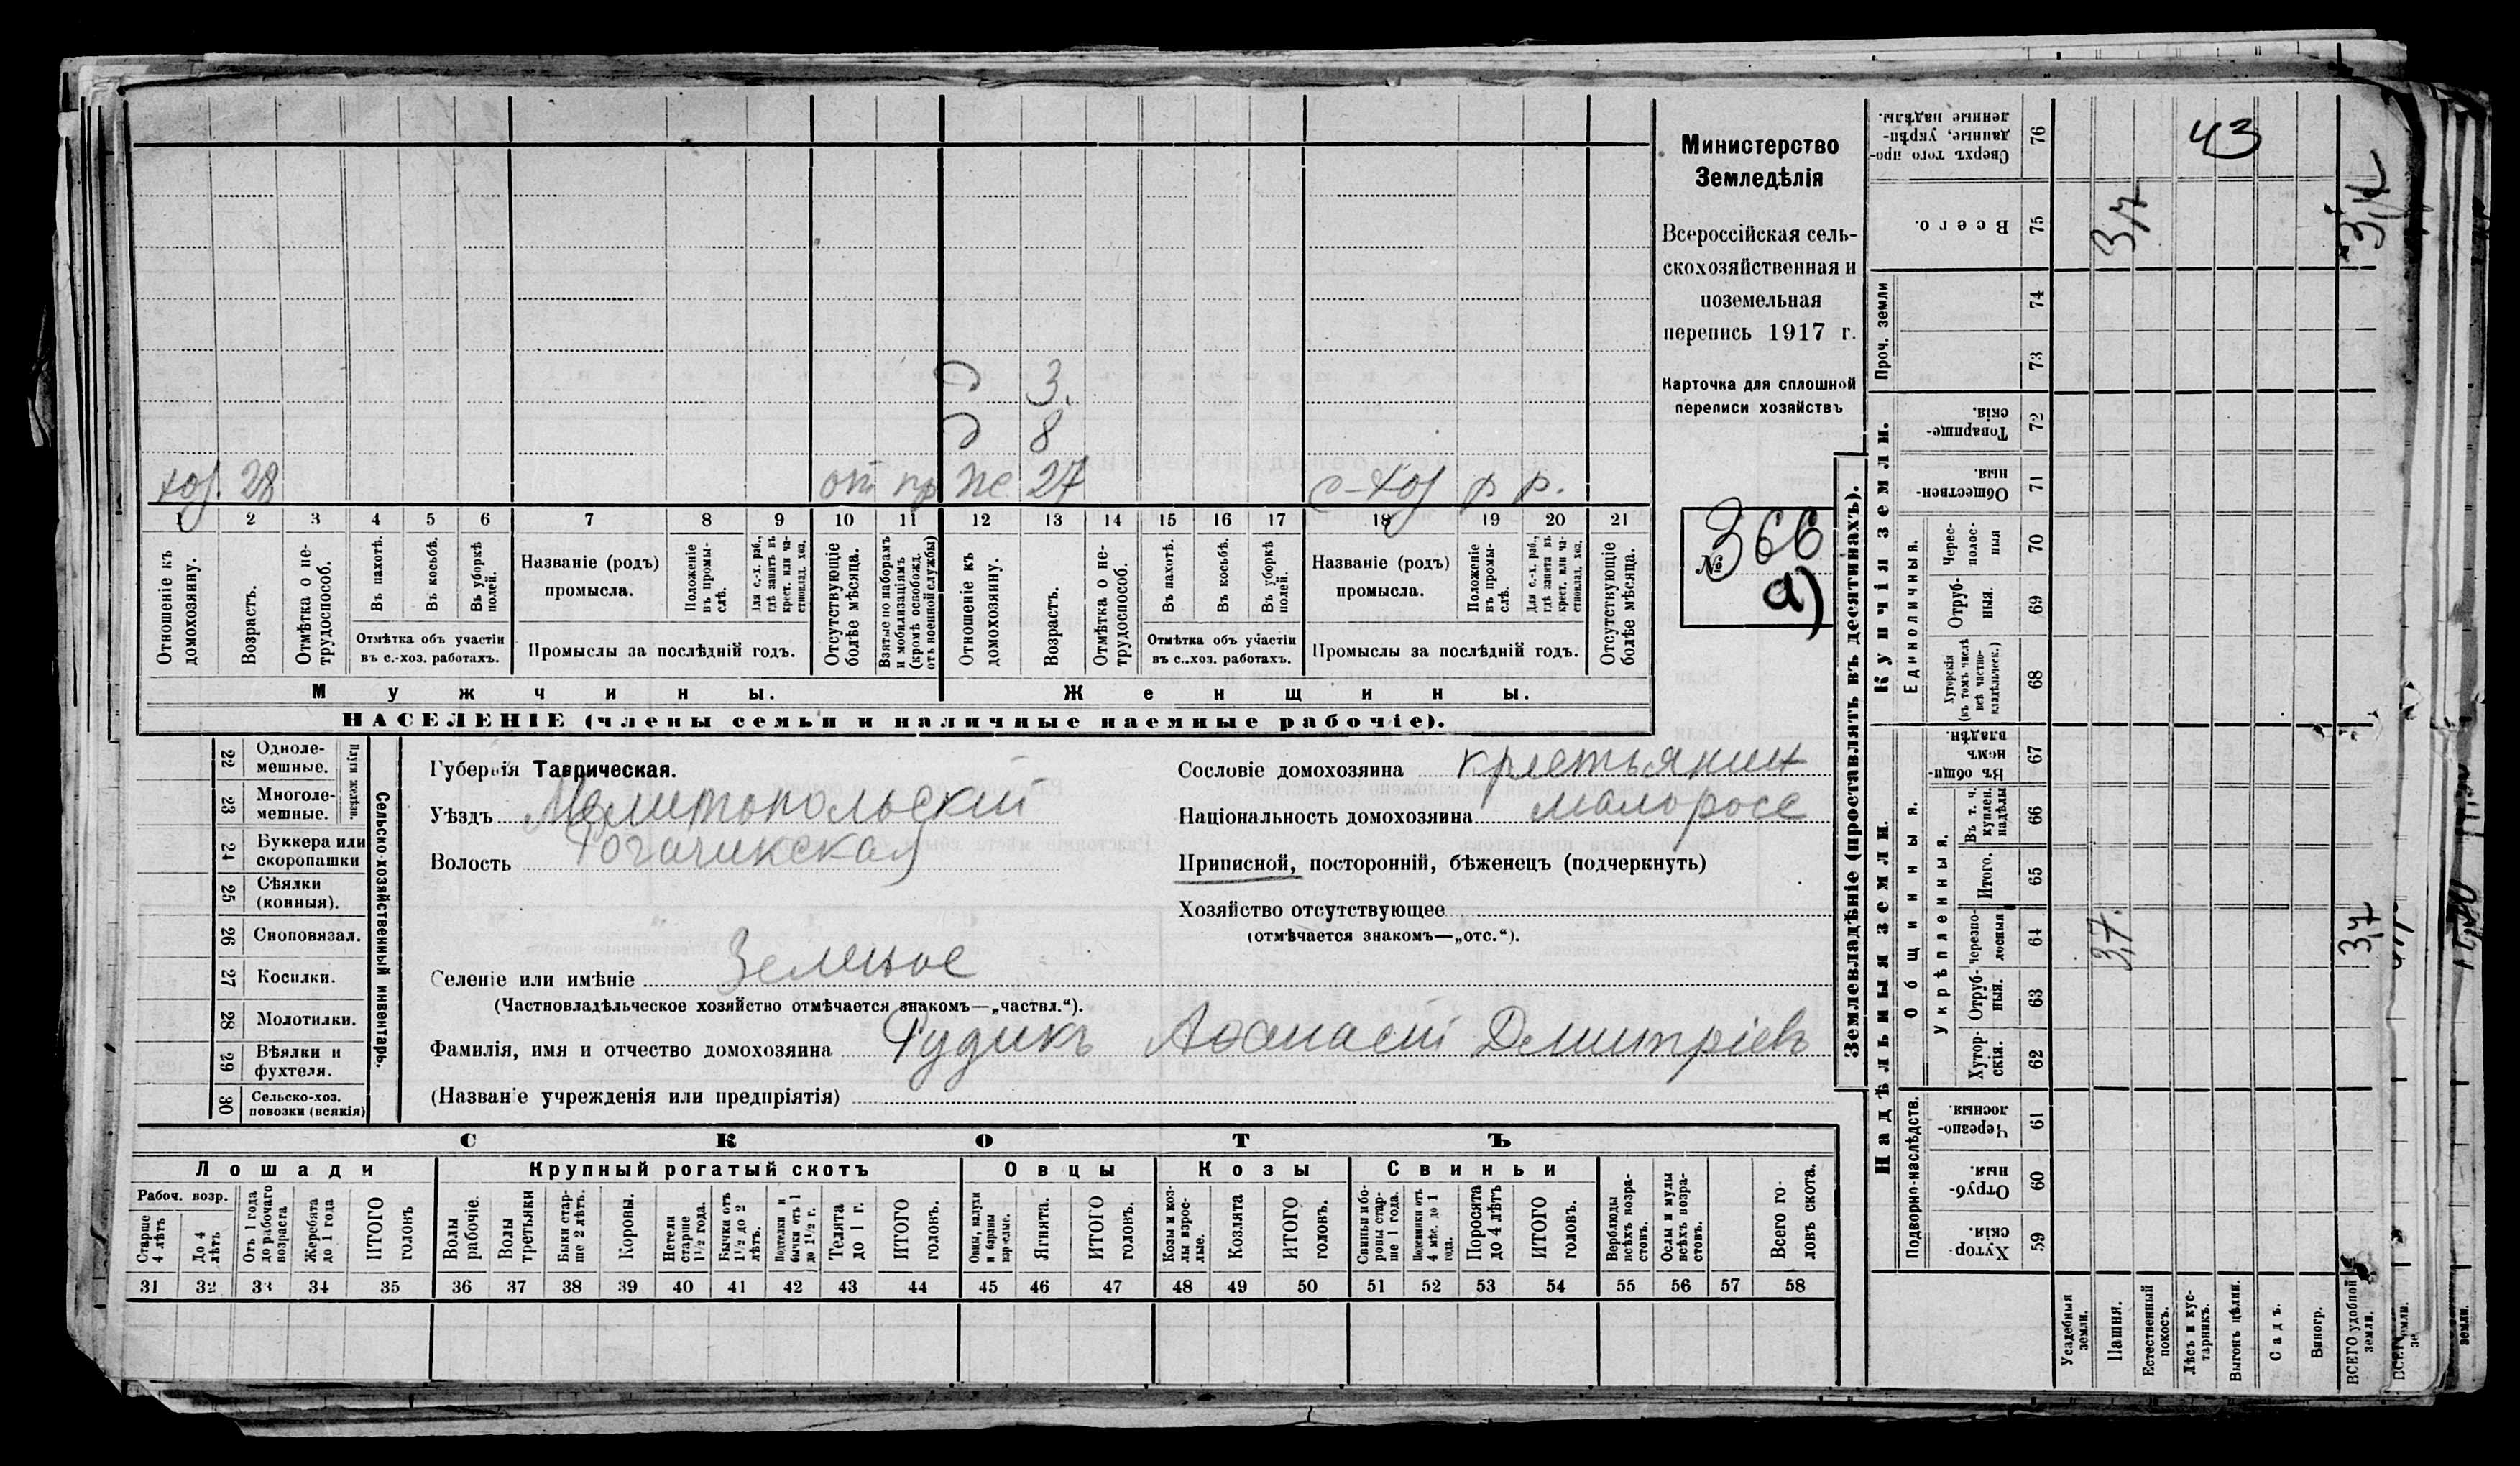 хоз. 28 от пр же 27 с-хоз р р.
д 8
д 3.
1 2 3 4 5 6 7 8 9 10 11 12 13 14 15 16 17 18 19 20 21
Отношеніе къ домохозяину.
Возрастъ.
Отмѣтка о не-трудоспособ.
Въ пахотѣ.
Въ косьбѣ.
Въ уборкѣ полей.
Отмѣтка объ участіи въ с.-хоз. работахъ.
Названіе (родъ) промысла.
Положеніе въ промы-слѣ.
Для с.-х. раб., гдѣ занятъ въ крест. или ча-стновлад. хоз.
Промыслы за послѣдній годъ.
Отсутствующіе болѣе мѣсяца.
Взятые по наборамъ и мобилизаціямъ (кромѣ освобожд. отъ военной службы)
Отношеніе къ домохозяину.
Возрастъ.
Отмѣтка о не-трудоспособ.
Въ пахотѣ.
Въ косьбѣ.
Въ уборкѣ полей.
Отмѣтка объ участіи въ с..хоз. работахъ.
Названіе (родъ) промысла.
Положеніе въ промы-слѣ.
Для с.-х. раб., гдѣ занята въ крест. или ча-стновлад. хоз.
Промыслы за послѣдній годъ.
Отсутствующіе болѣе мѣсяца.
Мужчины.
Женщины.
НАСЕЛЕНІЕ (члены семьи и наличные наемные рабочіе).
Министерство
Земледѣлія
Всероссійская сель-
скохозяйственная и
поземельная
перепись 1917 г.
Карточка для сплошной
переписи хозяйствъ
№ 366
а)
22 Одноле-мешные.
23 Многоле-мешные.
Плуги желѣзн.
24 Буккера или скоропашки
25 Сѣялки (конныя).
26 Сноповязал.
27 Косилки.
28 Молотилки.
29 Вѣялки и фухтеля.
30 Сельско-хоз. повозки (всякія)
Сельско-хозяйственный инвентарь.
Губернія Таврическая.
Уѣздъ Мелитопольскій
Волость Рогачикская
Селеніе или имѣніе Зеленое
(Частновладѣльческое хозяйство отмѣчается знакомъ—„частвл.“).
Фамилія, имя и отчество домохозяина Рудикъ Афанасій Дмитріевъ
(Названіе учрежденія или предпріятія)
Сословіе домохозяина крестьянин
Національность домохозяина малоросс
Приписной, посторонній, бѣженецъ (подчеркнуть)
Хозяйство отсутствующее
(отмѣчается знакомъ—„отс.“).
СКОТЪ
Лошади Крупный рогатый скотъ Овцы Козы Свиньи
Рабоч. возр.
Старше 4 лѣтъ
До 4 лѣтъ
Отъ 1 года до рабочаго возраста
Жеребята до 1 года
ИТОГО головъ
Волы рабочіе.
Волы третьяки
Быки стар-ше 2 лѣтъ.
Коровы.
Нетели старше 1½ года.
Бычки отъ 1½ до 2 лѣтъ.
Подтелки и бычки отъ 1 до 1½ г.
Телята до 1 г.
ИТОГО головъ.
Овцы, валухи и бараны взрослые.
Ягнята.
ИТОГО головъ.
Козы и коз-лы взрос-лые.
Козлята
ИТОГО головъ.
Свиньи и бо-ровы стар-ше 1 года.
Подсвинки отъ 4 мѣс. до 1 года.
Поросята до 4 лѣтъ
ИТОГО головъ.
Верблюды всѣхъ возра-стовъ.
Ослы и мулы всѣхъ возра-стовъ.
Всего го-ловъ скота.
31 32 33 34 35 36 37 38 39 40 41 42 43 44 45 46 47 48 49 50 51 52 53 54 55 56 57 58
Землевладѣніе (проставлять въ десятинахъ).
Надѣльныя земли.
Купчія земли.
Проч. земли
Подворно-наслѣдств.
Общинныя.
Укрѣпленныя.
Единоличныя.
Хутор-скія. 59
Отруб-ныя. 60
Черезпо-лосныя. 61
Хутор-скія. 62
Отруб-ныя. 63
Черезпо-лосныя 64 3,7.
Итого. 65
Въ т. ч. куплен. надѣлы 66
Въ общи-номъ владѣн. 67
Хуторскія (въ томъ числѣ всѣ частно-владѣльческ.) 68
Отруб-ныя. 69
Черес-полос-ныя 70
Обществен-ныя. 71
Товарище-скія. 72
73
74
Всего. 75 3,7
Сверхъ того про-данные, укрѣп-ленные надѣлы. 76
43
3,7
Усадебныя земли.
Пашня.
Естественный покосъ.
Лѣсъ и кус-тарникъ.
Выгонъ цѣлин.
Садъ.
Виногр.
ВСЕГО удобной земли.
земли.